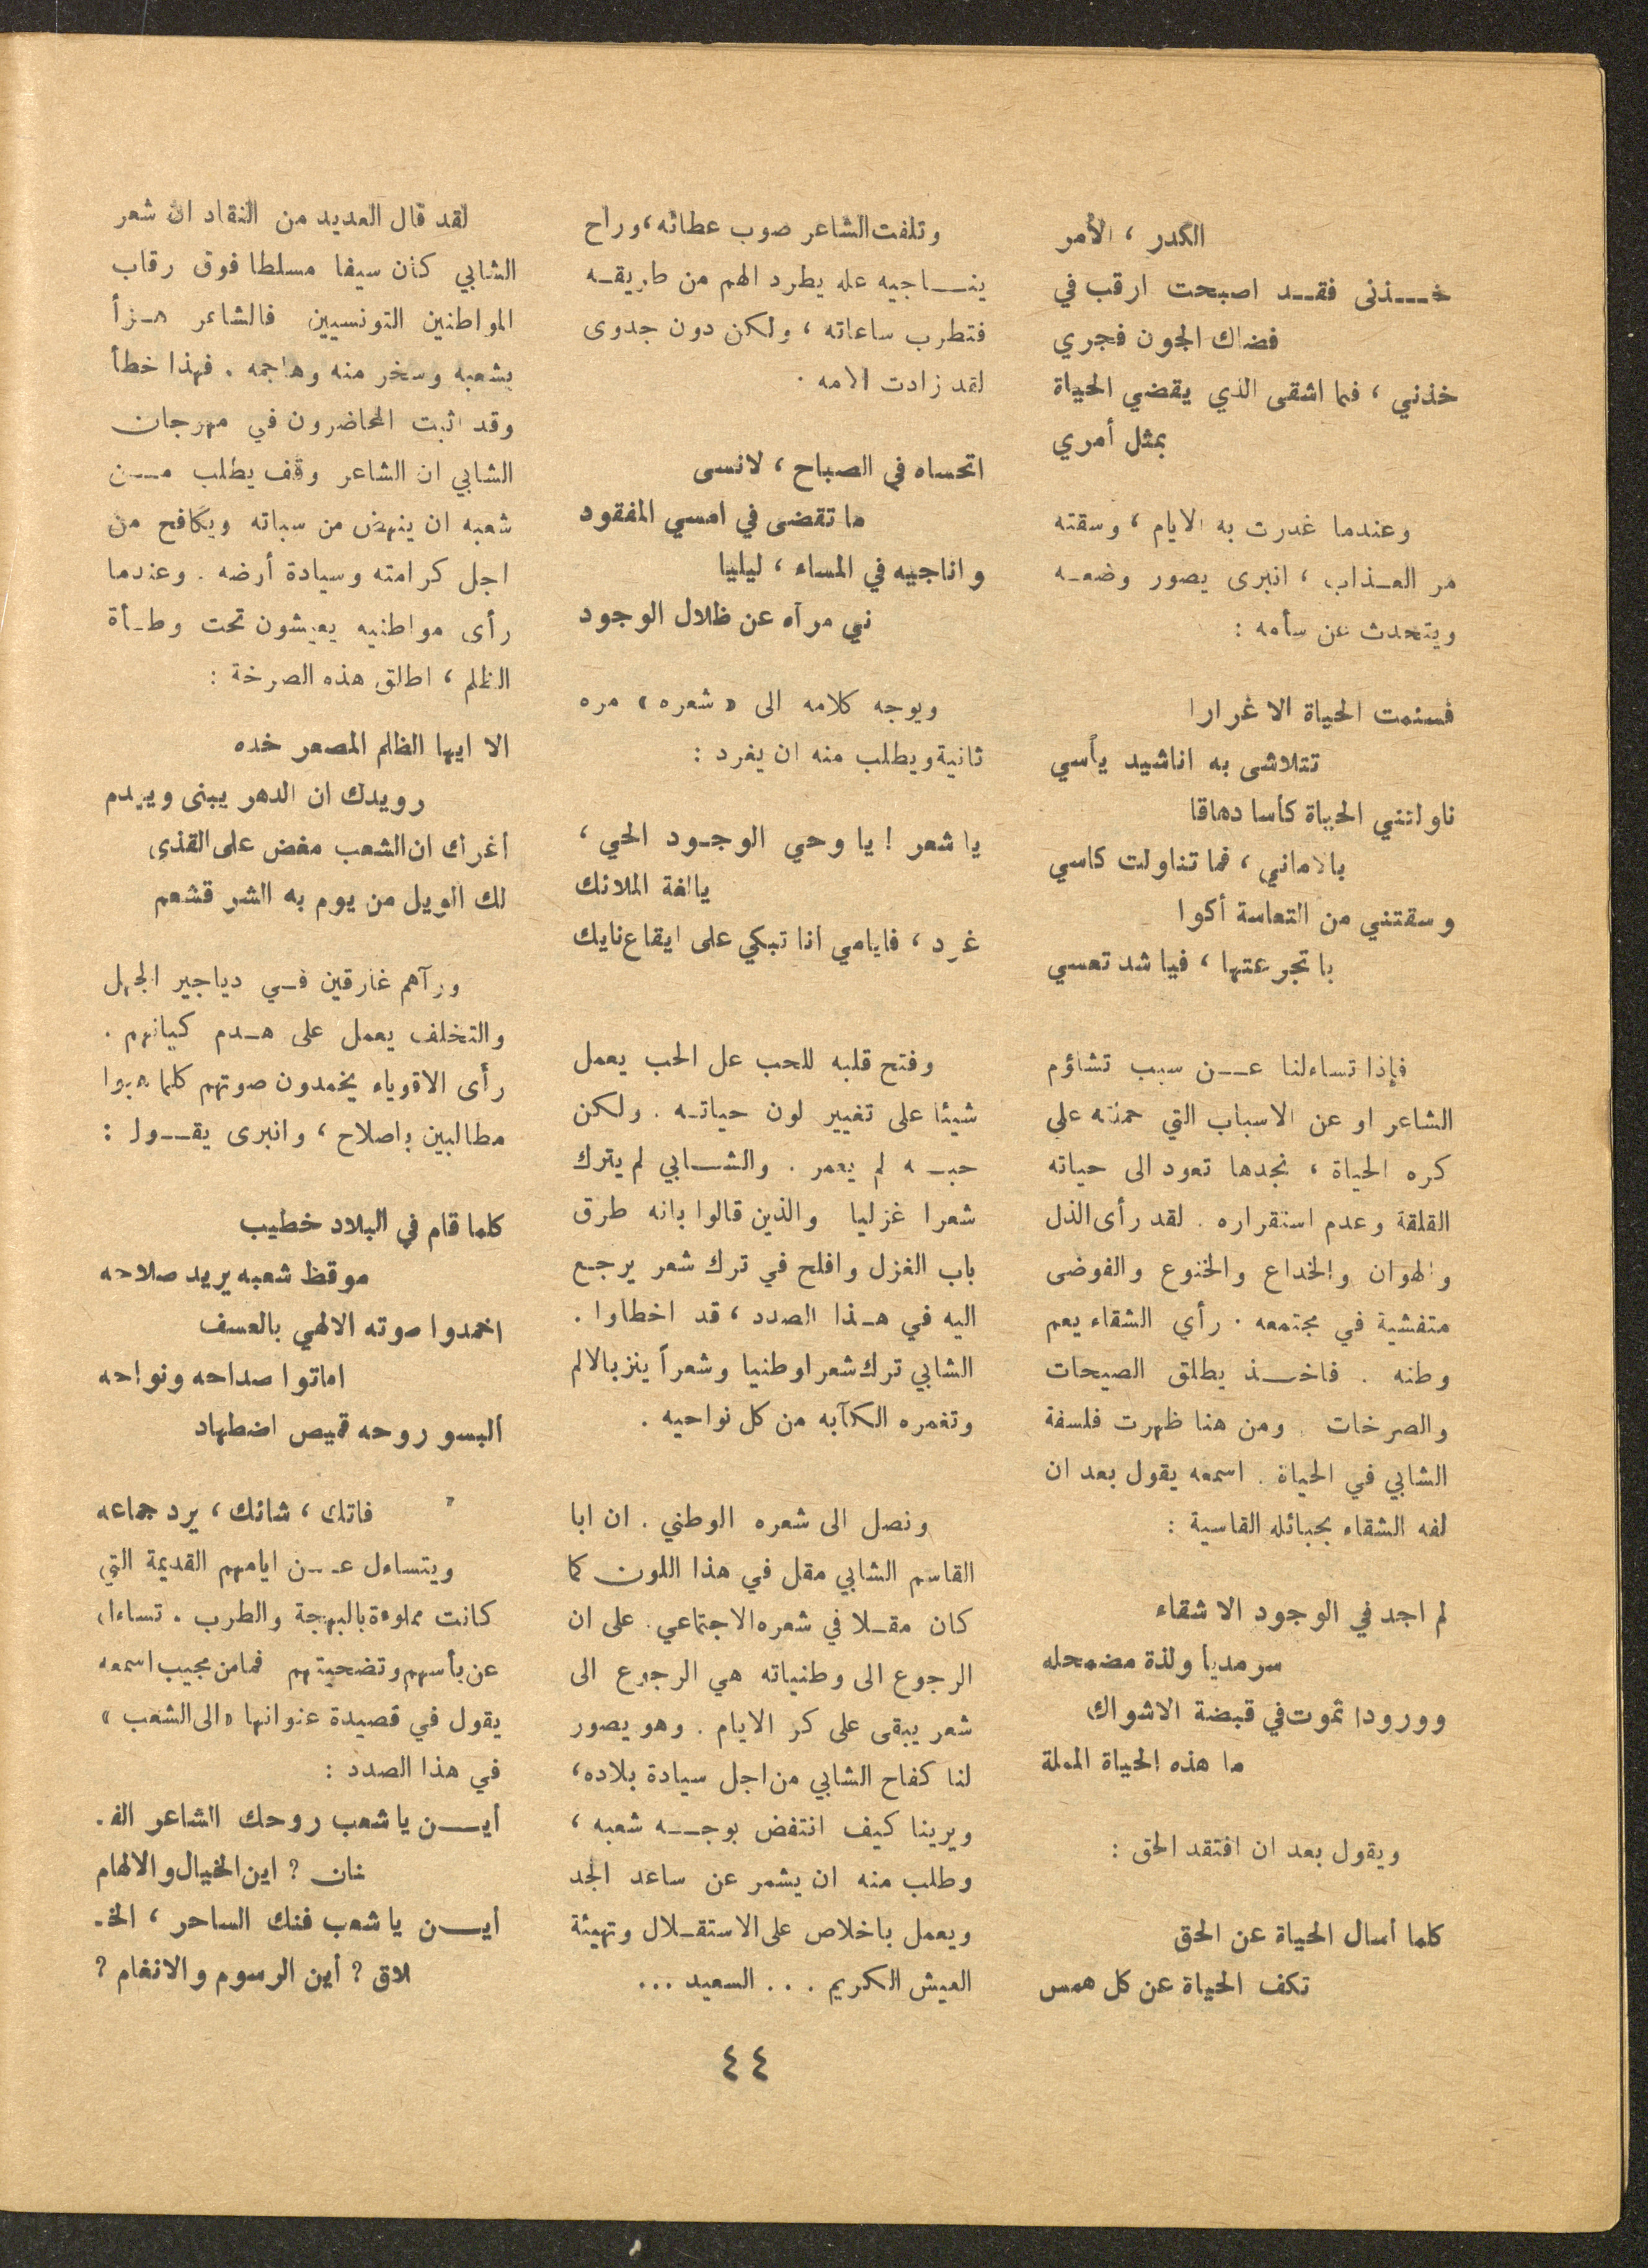 الكدر ، الأمر
خذنى فقد اصبحت ارقب في
فضاك الجون فجري
خذني ، فما اشقى الذي يقضي الحياة
بمثل أمري
وعندما غدرت به الايام ، وسقته
مر العذاب ، انبرى يصور وضعه
ويتحدث عن سأمه :
فسئمت الحياة الا غرارا
تتلاشى به اناشيد يأسي
ناولتني الحياة كأسا دهاقا
بالاماني ، فما تناولت كاسي
وسقتني من التعاسة أكوا
با تجرعتها ، فياشد تعسي
فإذا تساءلنا عن سبب تشاؤم
الشاعر او عن الاسباب التي حملته على
كره الحياة ، نجدها تعود الى حياته
القلقة وعدم استقراره . لقد رأى الذل
والهوان والخداع والخنوع والفوضى
متفشية في مجتمعه . رأي الشقاء يعم
وطنه . فاخذ يطلق الصيحات
والصرخات . ومن هنا ظهرت فلسفة
الشابي في الحياة . اسمعه يقول بعد ان
لفه الشقاء بحبائله القاسية :
لم اجد في الوجود الا شقاء
سرمديا ولذة مضمحله
وورودا تموت في قبضة الاشواك
ما هذه الحياة المملة
ويقول بعد ان افتقد الحق :
كلما أسال الحياة عن الحق
تكف الحياة عن كل همس
وتلفت الشاعر صوب عطائه ، وراح
يناجيه عله يطرد الهم من طريقه
فتطرب ساعاته ، ولكن دون جدوى
لقد زادت الامه .
اتحساه في الصباح ، لانسى
ما تقضى في امسي المفقود
واناجيه في المساء ، ليليا
ني مرآه عن ظلال الوجود
ويوجه كلامه الى « شعره » مره
ثانية ويطلب منه ان يغرد :
يا شعر ! يا وحي الوجود الحي ،
يالغة الملائك
غرد ، فايامي انا تبكي على ايقاع نايك
وفتح قلبه للحب عل الحب يعمل
شيئا على تغيير لون حياته . ولكن
حبه لم يعمر . والشابي لم يترك
شعرا غزليا والذين قالوا بانه طرق
باب الغزل وافلح في ترك شعر يرجع
اليه في هذا الصدد ، قد اخطاوا .
الشابي ترك شعرا وطنيا وشعراً ينز بالالم
وتغمره الكآبه من كل نواحيه .
ونصل الى شعره الوطني . ان ابا
القاسم الشابي مقل في هذا اللون كما
كان مقلا في شعره الاجتماعي . على ان
الرجوع الى وطنياته هي الرجوع الى
شعر يبقى على كر الايام . وهو يصور
لنا كفاح الشابي من اجل سيادة بلاده ،
ويرينا كيف انتفض بوجه شعبه ،
وطلب منه ان يشمر عن ساعد الجد
ويعمل باخلاص على الاستقلال وتهيئة
العيش الكريم . . . السعيد ...
لقد قال العديد من النقاد ان شعر
الشابي كان سيفا مسلطا فوق رقاب
المواطنين التونسيين فالشاعر هزأ
بشعبه وسخر منه وهاجمه . فهذا خطأ
وقد اثبت المحاضرون في مهرجان
الشابي ان الشاعر وقف يطلب من
شعبه ان ينهض من سباته ويكافح من
اجل كرامته وسيادة أرضه . وعندما
رأى مواطنيه يعيشون تحت وطأة
الظلم ، اطلق هذه الصرخة :
الا ايها الظلم المصعر خده
رويدك ان الدهر يبنى ويهدم
أغرك ان الشعب مغض على القذى
لك الويل من يوم به الشر قشعم
ورآهم غارقين في دياجير الجهل
والتخلف يعمل على هدم كيانهم .
رأى الاقوياء يخمدون صوتهم كلما هبوا
مطالبين باصلاح ، وانبرى يقول :
كلما قام في البلاد خطيب
موقظ شعبه يريد صلاحه
اخمدوا صوته الالهي بالعسف
اماتوا صداحه ونواحه
ألبسو روحه قميص اضطهاد
فاتك ، شائك ، يرد جماعه
ويتساءل عن ايامهم القديمة التي
كانت مملوءة بالبهجة والطرب . تساءل
عن بأسهم وتضحيتهم فما من مجيب اسمعه
يقول في قصيدة عنوانها « الى الشعب »
في هذا الصدد :
أين يا شعب روحك الشاعر الفـ
نان ؟ اين الخيال والالهام
أين يا شعب فنك الساحر ، الخـ
لاق ؟ أين الرسوم والانغام ؟
٤٤